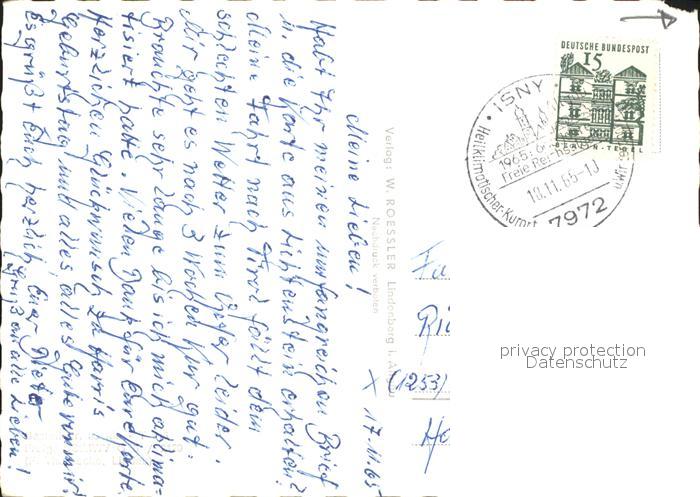 Meine Lieben!
X 17.11.65
Habt Ihr meinen umfangreichen Brief
u. die Karte aus Lichtenstein erhalten?
Meine Fahrt nach Tirol fällt dem
schlechten Wetter zum Opfer leider.
Mir geht es nach 3 Wochen Kur gut.
Brauchte sehr lange bis ich mich aklima-
tisiert hatte. Vielen Dank für Eure Karte.
Herzlichen Glückwunsch zu Harris
Geburtstag und alles, alles Gute von mir!
Es grüßt Euch herzlich Euer Dieter
Grüße an alle Lieben!
Verlag: W. ROESSLER Lindenberg i.
Nachdruck verboten
DEUTSCHE BUNDESPOST
15
BERLIN-TEGEL
ISNY
1965:
Freie Reichs
18.11.65-13
Heilklimatischer Kurort
7972
(1253)
privacy protection
Datenschutz